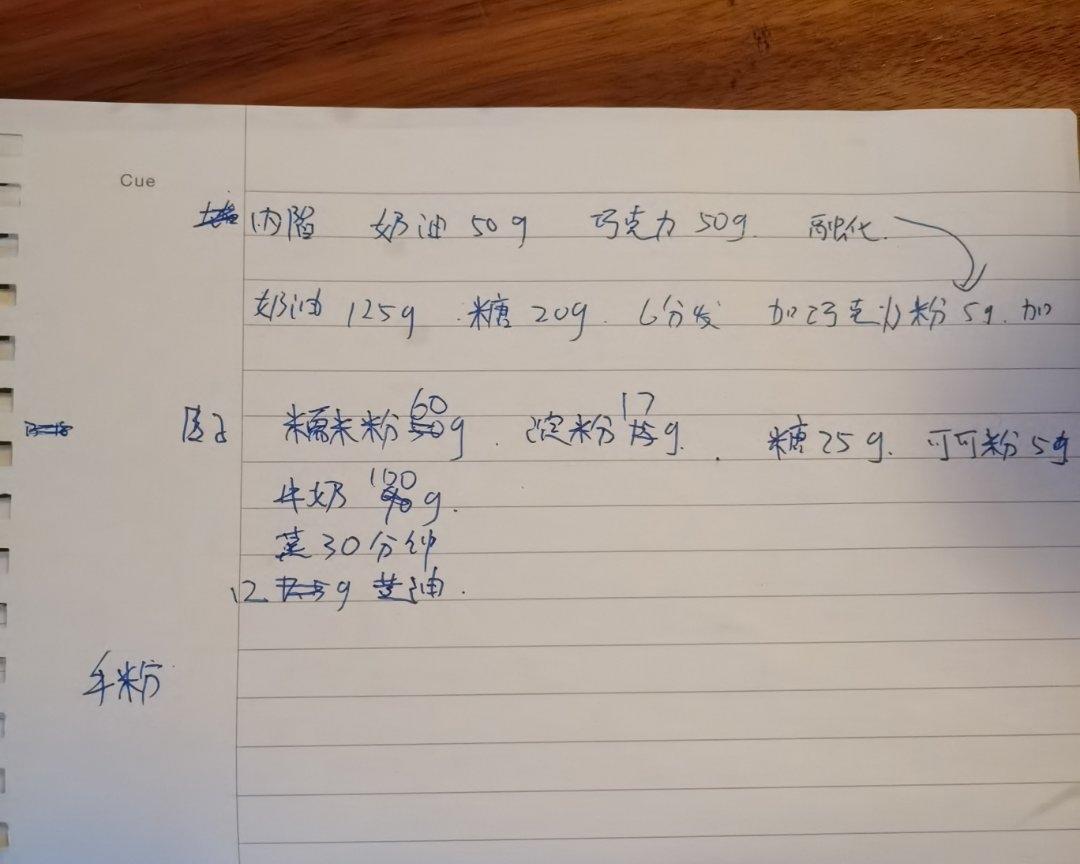 Cue
内陷 奶油 50g 巧克力 50g. 融化.
奶油 125g 糖 20g. 6分发 加巧克力粉 5g. 加
糯米粉 60g. 淀粉 17g. 糖 25g. 可可粉 5g
牛奶 100g.
蒸30分钟
12 g 黄油.
手粉